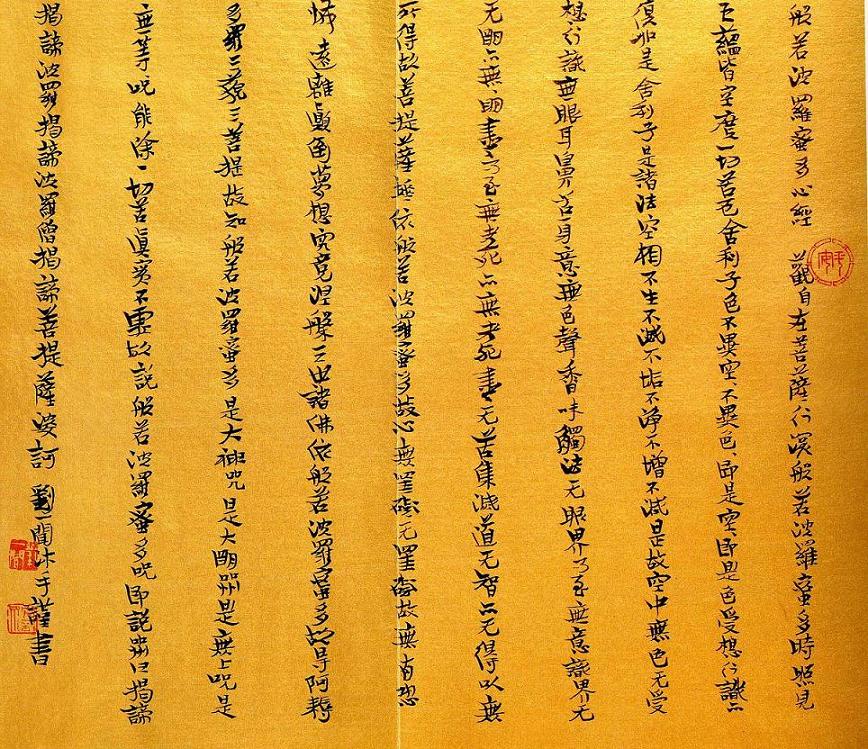 般若波羅蜜多心經 觀自在菩薩行深般若波羅蜜多時照見
五蘊皆空度一切苦厄舍利子色不異空、不異色、即是空、即是色受想行識亦
復如是舍利子是諸法空相不生不滅不垢不淨不增不減是故空中無色无受
想行識無眼耳鼻舌身意無色聲香味觸法无眼界乃至無意識界无
无明亦無明盡乃至無老死亦無老死盡无苦集滅道无智亦无得以無
所得故菩提薩埵依般若波羅蜜多故心無罣礙无罣礙故無有恐
怖遠離顛倒夢想究竟涅槃三世諸佛依般若波羅蜜多故得阿耨
多羅三藐三菩提故知般若波羅蜜多是大神咒是大明咒是無上咒是
無等咒能除一切苦眞實不虛故說般若波羅蜜多咒即說咒曰揭諦
揭諦波羅揭諦波羅僧揭諦菩提薩婆訶 劉一聞沐手謹書